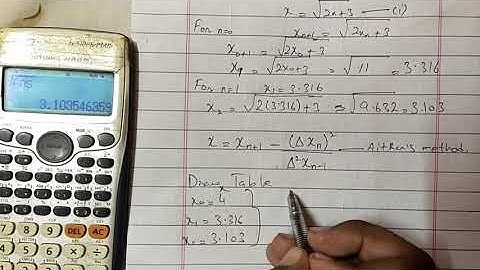 x = √2x+3 —— (1)
For n=0 xₙ₊₁ = √2xₙ+3
x₀₊₁ = √2x₀+3
x₁ = √2x₀+3 = √11 = 3.316
For n=1 x₁ = 3.316
x₂ = √2(3.316)+3 = √9.632 = 3.103
x = xₙ₊₁ − (Δxₙ)² / Δ²xₙ₋₁ Aitken's method.
Draw Table
x₀ = 4
x₁ = 3.316
x₂ = 3.103
√Ans
3.103546359
DEL AC